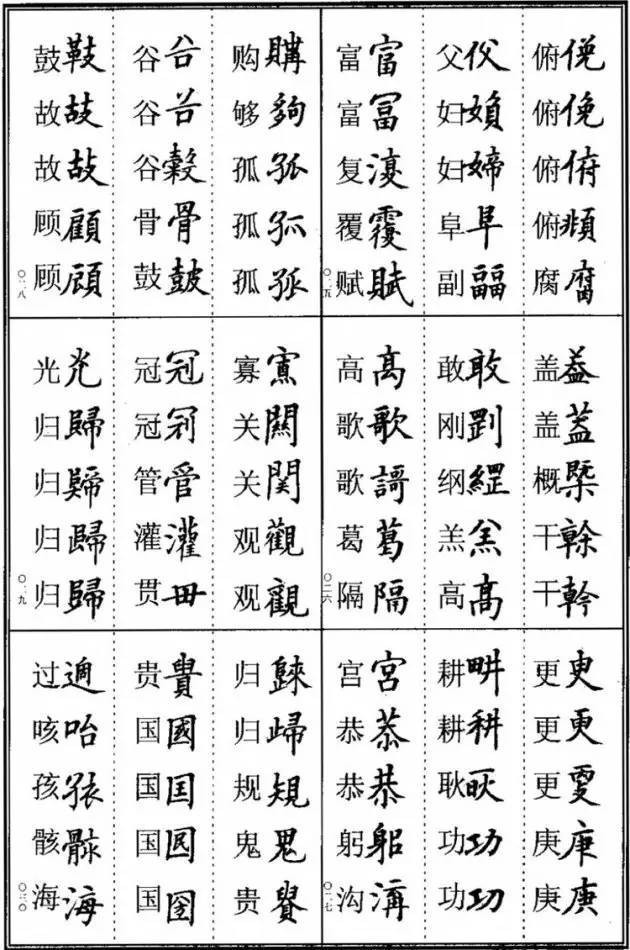 俯俛 俯俛 俯俯 俯頫 腐腐
父 妇媍 妇婦 阜阜 副疈
富富 富冨 复澓 覆覆 赋賦
〇二五
盖葢 盖蓋 概槩 干榦 干幹
敢敢 刚㓻 纲 羔羔 高高
高髙 歌歌 歌謌 葛葛 隔隔
〇二六
更 更更 更 庚庚 庚庚
耕畊 耕耕 耿耿 功功 功㓛
宫宮 恭恭 恭恭 躬躳 沟溝
〇二七
购購 够夠 孤孤 孤孤 孤孤
谷谷 谷谷 谷穀 骨骨 鼓皷
鼓 故故 故故 顾顧 顾顧
〇二八
寡寡 关關 关関 观觀 观觀
冠冠 冠冠 管管 灌灌 贯毌
光光 归歸 归歸 归歸 归歸
〇二九
归 归歸 规規 鬼鬼 贵貴
贵貴 国國 国囯 国 国圀
过過 咳咍 孩孩 骸骸 海海
〇三〇